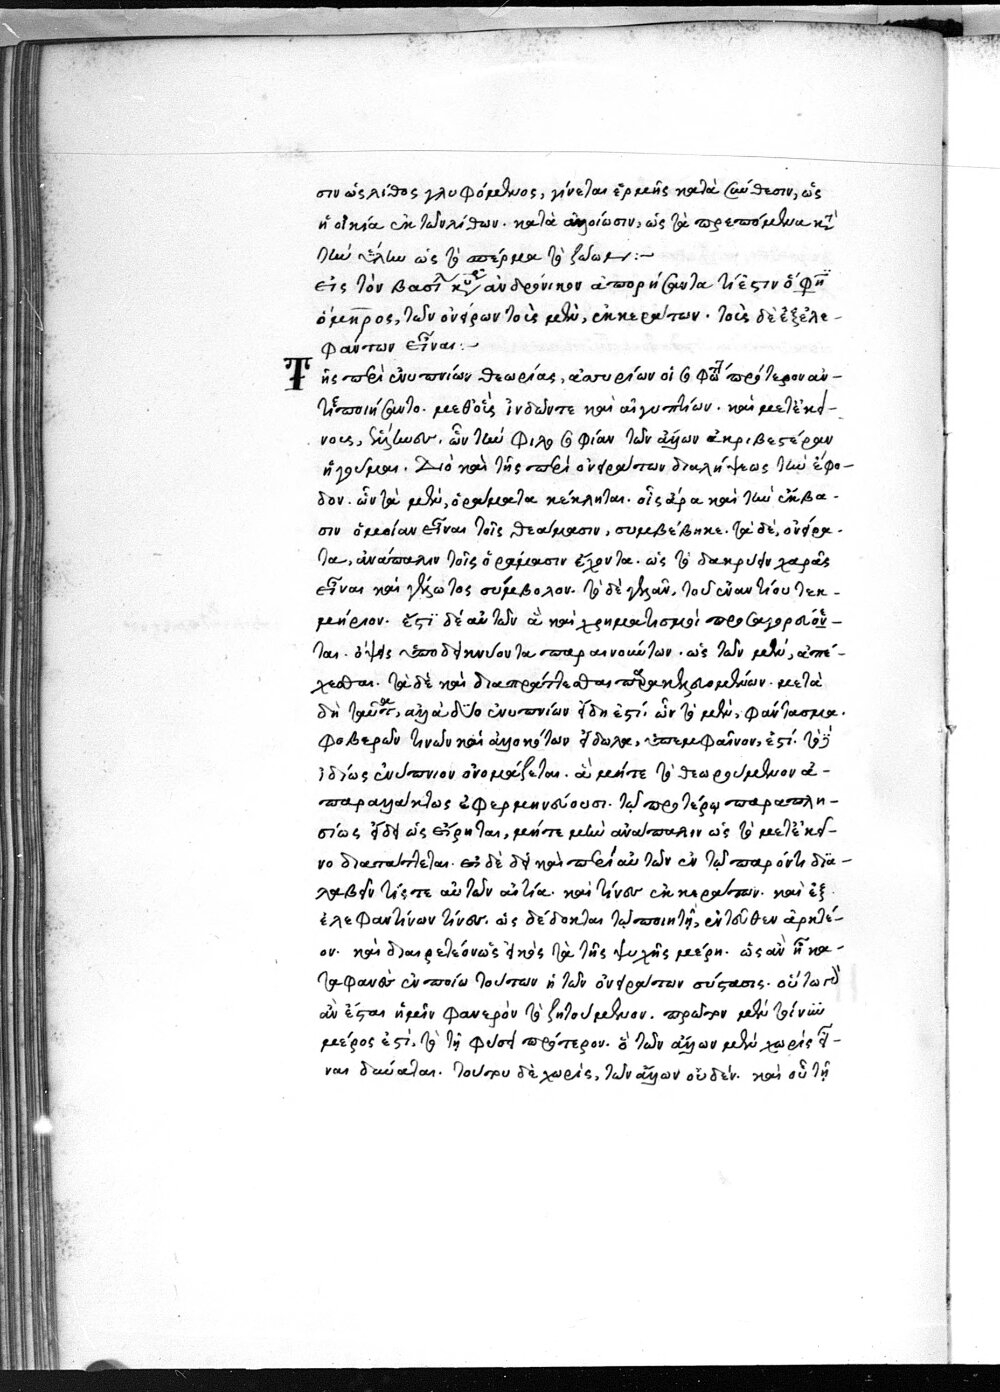 σιν ὡς λίθος γλυφόμενος, γίνεται ἑρμῆς κατὰ σύνθεσιν, ὡς
ἡ οἰκία ἐκ τῶν λίθων. κατὰ ἀλλοίωσιν, ὡς τὰ τρεπόμενα κατὰ
τὴν ὕλην ὡς τὸ σπέρμα τὸ ζῶον:~
εἰς τὸν βασιλ κυρ ἀνδρόνικον ἀπορήσαντα τί ἐστιν ὅ φη
ὅμηρος, τῶν ὀνείρων τοὺς μὲν, ἐκ κεράτων. τοὺς δὲ ἐξ ἐλε-
φάντων εἶναι:~
Τῆς περὶ ἐνυπνίων θεωρίας, ἀσυρίων οἱ σοφώτ πρότερον ἀν-
τεποιήσαντο. μεθ' οὓς ἰνδῶν τε καὶ αἰγυπτίων. καὶ μετ' ἐκεί-
νους, ἑλλήνων. ὧν τὴν φιλοσοφίαν τῶν ἄλλων ἀκριβεστέραν
ἡγοῦμαι. Διὸ καὶ τῆς περὶ ὀνειράτων διαλήψεως τὴν ἔφο-
δον. ὧν τὰ μὲν, ὁράματα κέκληται. οἷς ἄρα καὶ τὴν ἔκβα-
σιν ὁμοίαν εἶναι τοῖς θεάμασιν, συμβέβηκε. τὰ δὲ, ὀνείρα-
τα, ἀνάπαλιν τοῖς ὁράμασιν ἔχοντα. ὡς τὸ δακρύειν χαρᾶς
εἶναι καὶ γέλωτος σύμβολον. τὸ δὲ γελᾶν, τοῦ ἐναντίου τεκ-
μήριον. ἔστι δὲ αὐτῶν ἃ καὶ χρηματισμοὶ προσαγορεύον-
ται. ὄψεις ὑποδεικνύοντα παραινούντων. ὡς τῶν μὲν, ἀπέ-
χεσθαι. τὰ δὲ καὶ διαπράττεσθαι παρακελευομένων. μετὰ
δὴ ταῦτα, ἄλλα δύο ἐνυπνίων εἴδη ἐστί. ὧν τὸ μὲν, φάντασμα.
φοβερῶν τινῶν καὶ ἀλλοκότων εἴδωλα, ὑπεμφαῖνον, ἐστί. τὸ δ'
ἰδίως ἐνύπνιον ὀνομάζεται. ἃ μήτε τὸ θεωρούμενον ἀ-
παραλλάκτως ἐφερμηνεύουσι. τῷ προτέρῳ παραπλη-
σίως εἴδει ὡς εἴρηται, μήτε μὴν ἀνάπαλιν ὡς τὸ μετ' ἐκεῖ-
νο διαπλάττεται. εἰ δὲ δεῖ καὶ περὶ αὐτῶν ἐν τῷ παρόντι δια-
λαβεῖν τίς τε αὐτῶν αἰτία. καὶ τίνων ἐκ κεράτων. καὶ ἐξ
ἐλεφαντίνων τίνων. ὡς δέδοκται τῷ ποιητῇ, ἐντεῦθεν ἀρκτέ-
ον. καὶ διαιρετέον ὡς εἰκὸς τὰ τῆς ψυχῆς μέρη. ὡς ἂν ᾖ κα-
ταφανὲς ἐν ποίῳ τούτων ἡ τῶν ὀνειράτων σύστασις. οὕτω γὰρ
ἂν ἔσται ἡμῖν φανερὸν τὸ ζητούμενον. πρῶτον μὲν τοίνυν
μέρος ἐστί, τὸ τῇ φύσει πρότερον. ὃ τῶν ἄλλων μὲν χωρὶς εἶ-
ναι δύναται. τούτου δὲ χωρὶς, τῶν ἄλλων οὐδέν. καὶ οὗ τῇ